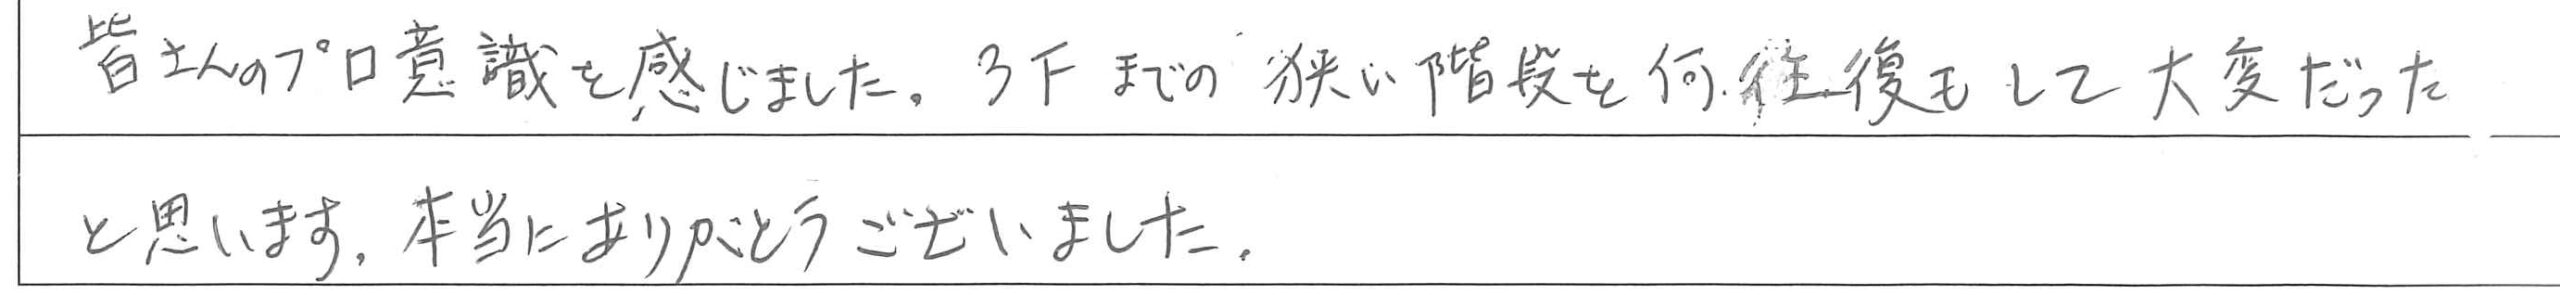 皆さんのプロ意識を感じました。3Fまでの狭い階段を何往復もして大変だった
と思います。本当にありがとうございました。